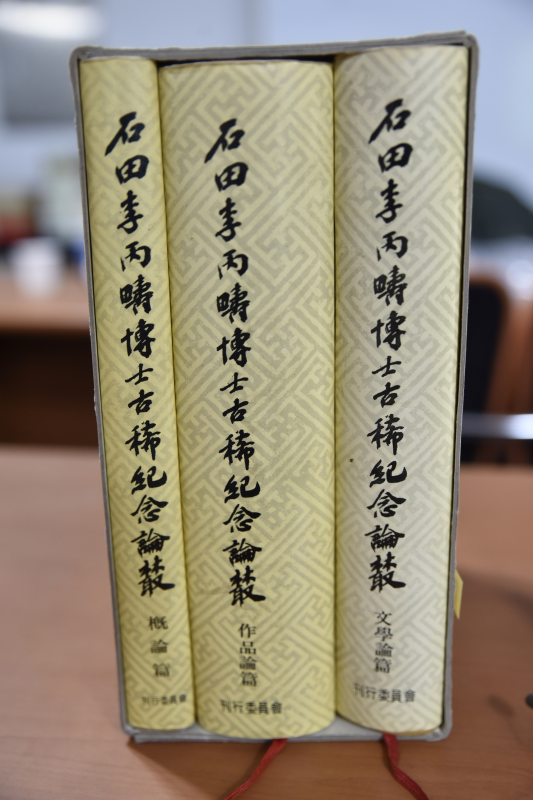 石田李丙疇博士古稀紀念論叢
概論篇
刊行委員會
石田李丙疇博士古稀紀念論叢
作品論篇
刊行委員會
石田李丙疇博士古稀紀念論叢
文學論篇
刊行委員會